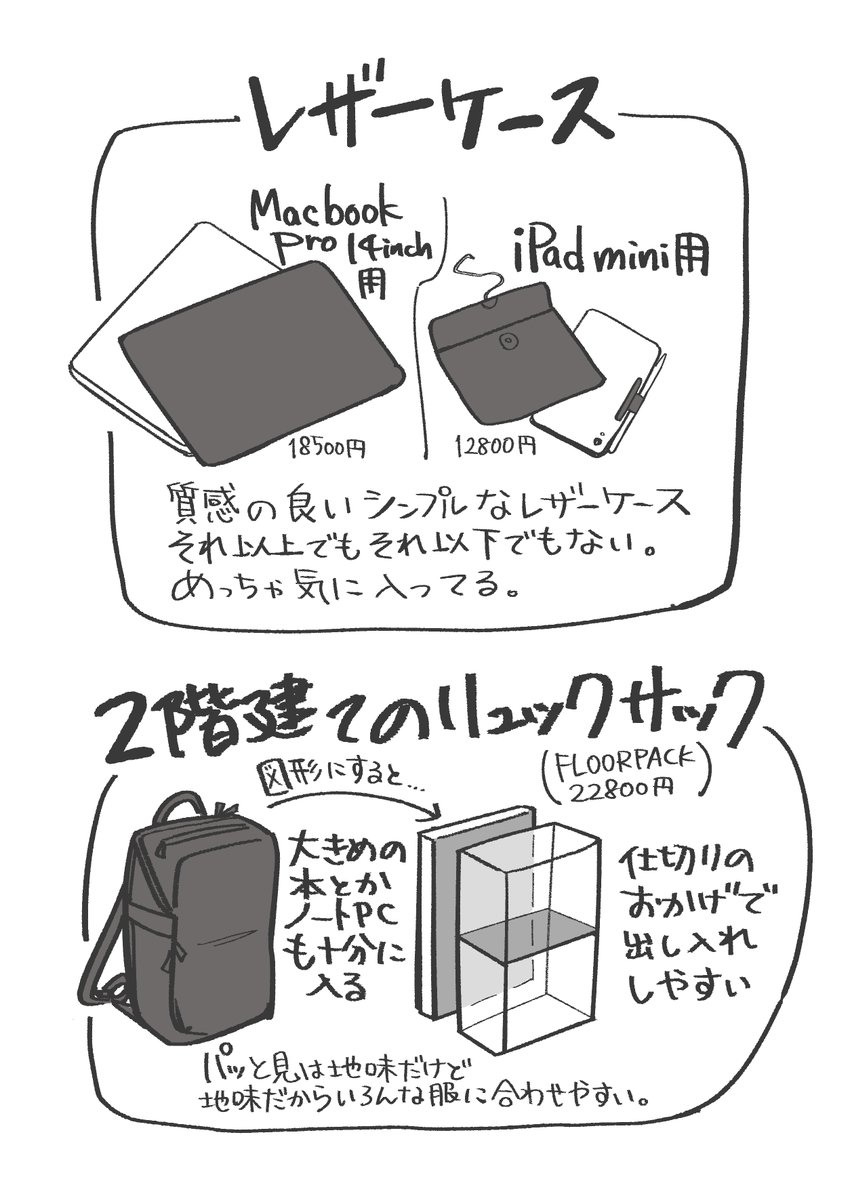 レザーケース
Macbook
Pro 14inch
用
iPad mini用
18500円
12800円
質感の良いシンプルなレザーケース
それ以上でもそれ以下でもない。
めっちゃ気に入ってる。
2階建てのリュックサック
(FLOORPACK)
22800円
図形にすると…
大きめの
本とか
ノートPC
も十分に
入る
仕切りの
おかげで
出し入れ
しやすい
パッと見は地味だけど
地味だからいろんな服に合わせやすい。